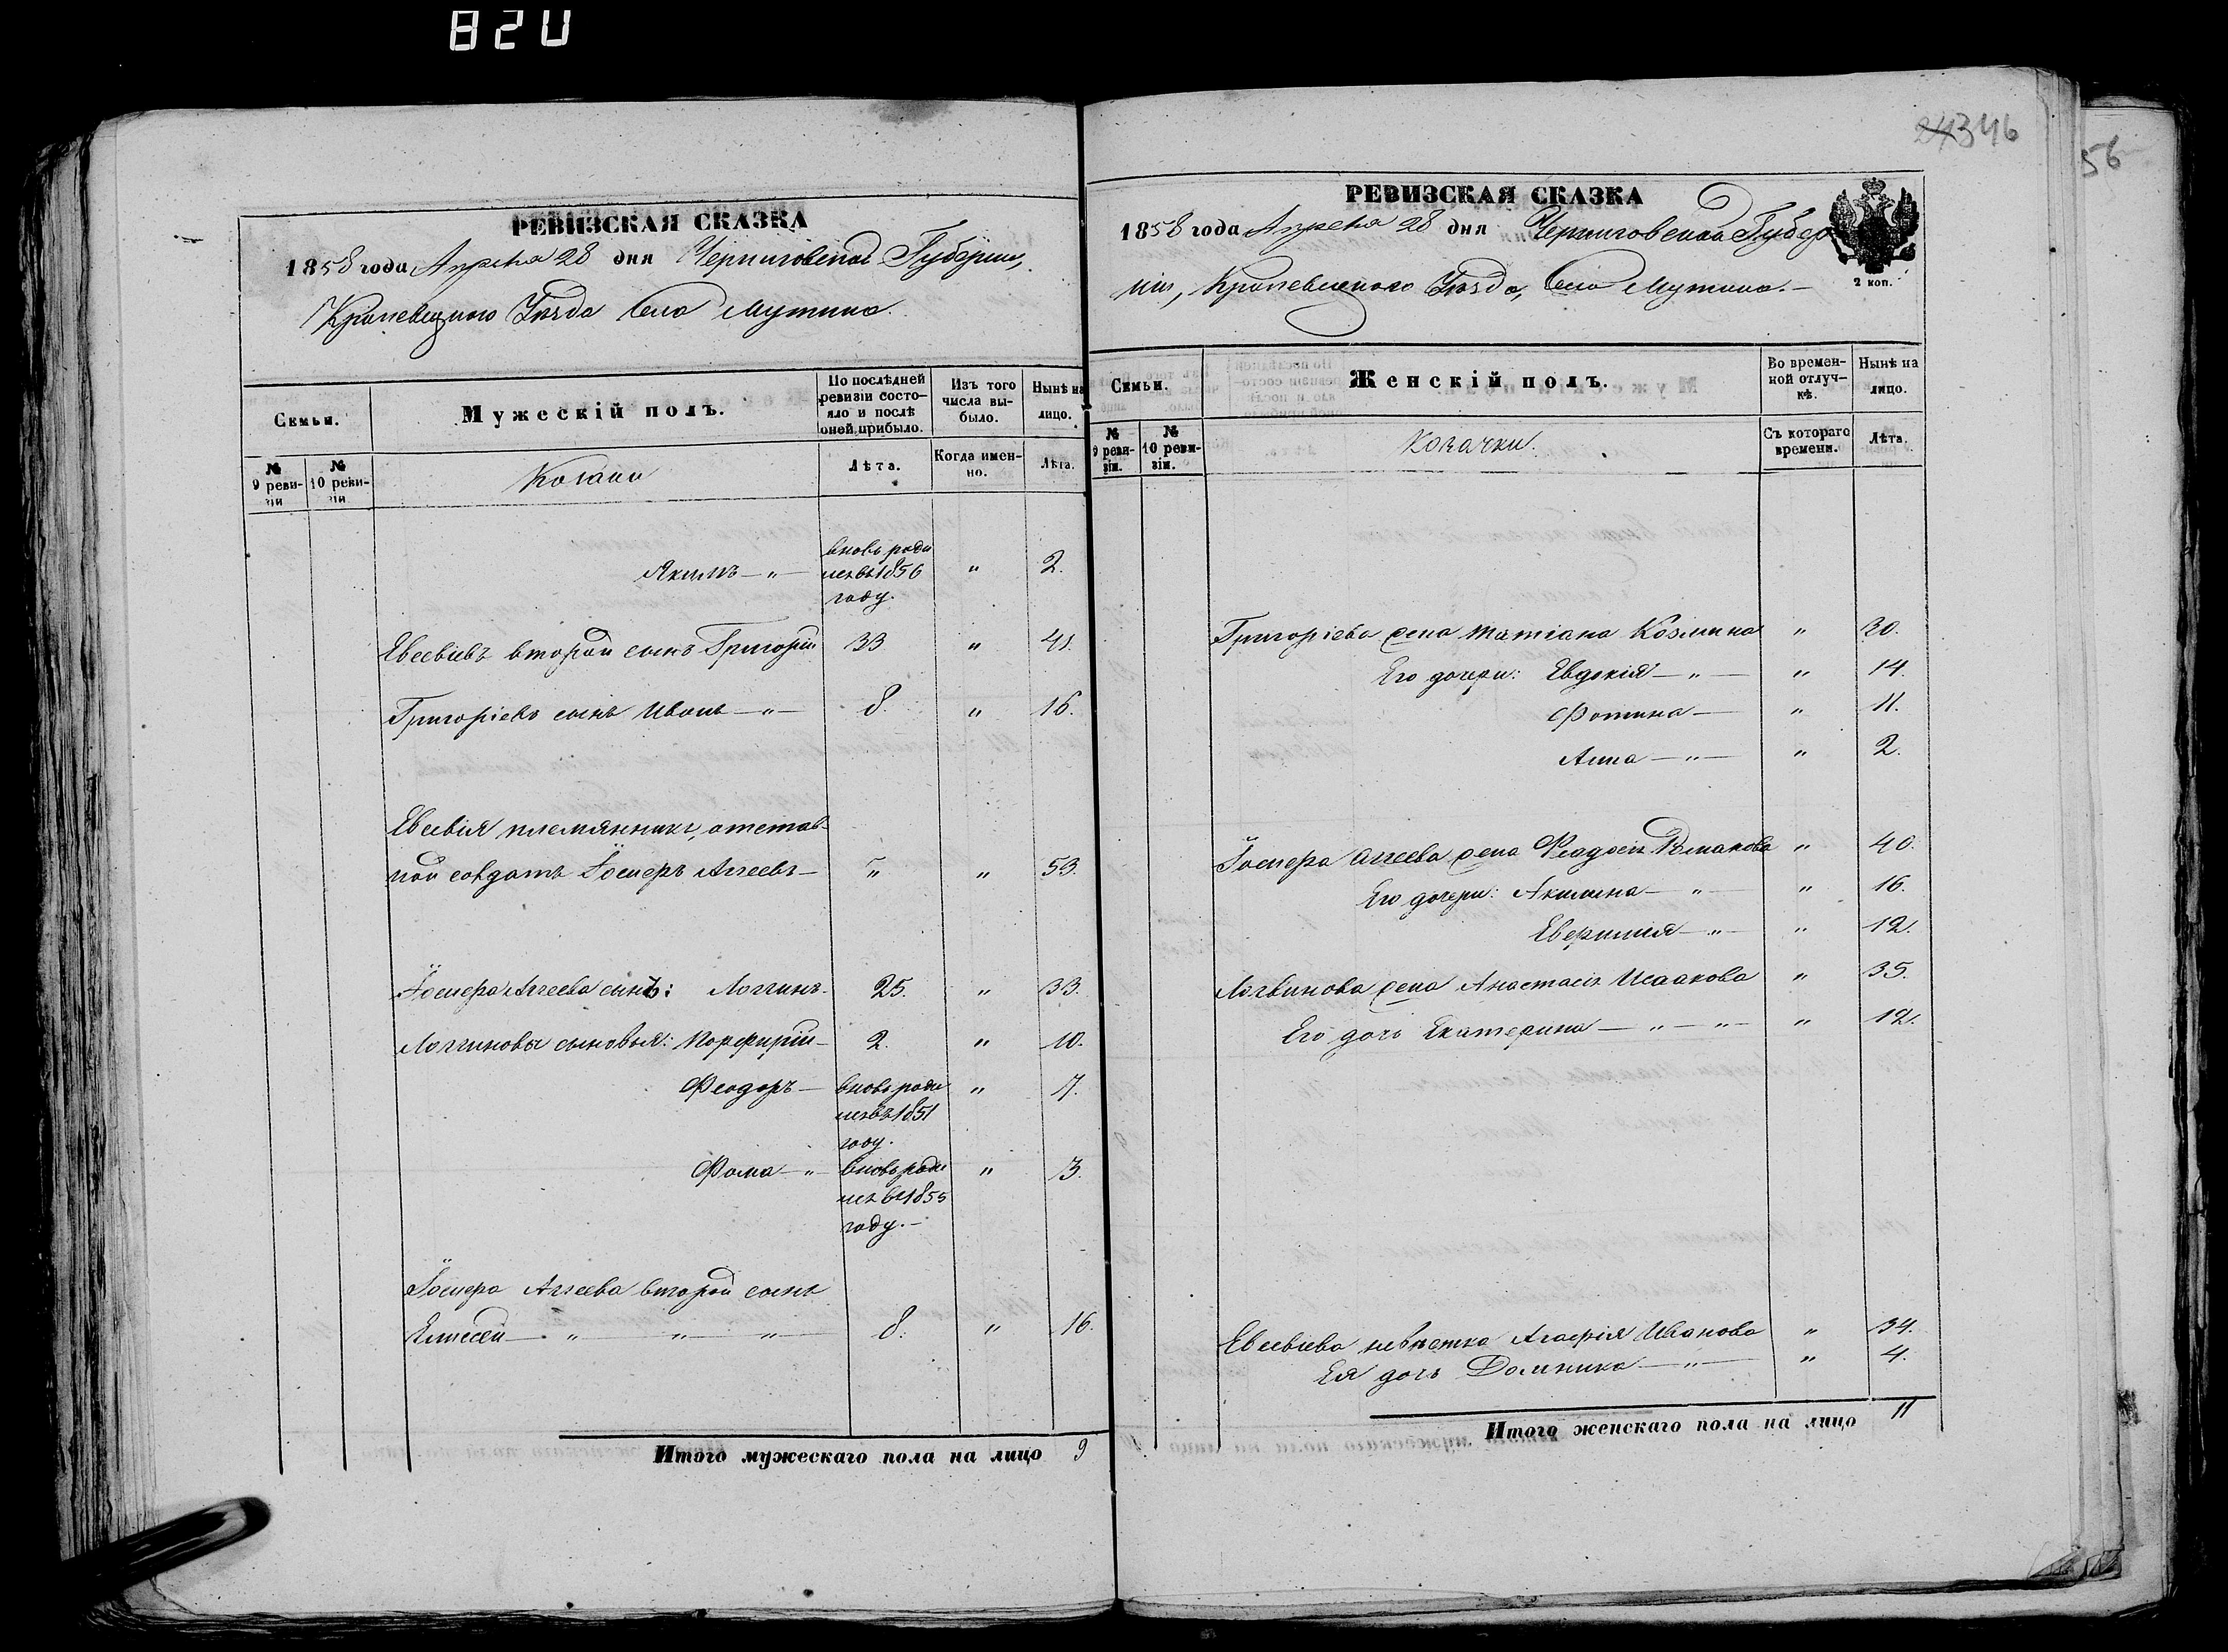 820
РЕВИЗСКАЯ СКАЗКА
1858 года Апреля 28 дня Черниговской Губерніи,
Кролевецкого Уѣзда Село Мутино.
Семьи.
Мужескій полъ.
По послѣдней ревизіи состояло и послѣ оней прибыло.
Изъ того числа выбыло.
Нынѣ на лицо.
№ 9 ревизіи
№ 10 ревизіи
Козаки
Лѣта.
Когда именно.
Лѣта.
Якимъ — " — вновь родился въ 1856 году. " 2.
Евсевіевъ второй сынъ Григорій 33 " 41.
Григоріевъ сынъ Иванъ — " — 8. " 16.
Евсевія племянникъ, отстав-
ной солдатъ Іосифъ Аггеевъ — " " 53.
Аггеева сынъ: Логгинъ 25. " 33.
Логгиновы сыновья: Порфирій — 2. " 10.
Феодоръ — вновь родился въ 1851 году. " 7.
Фома — " вновь родился въ 1855 году. — " 3.
Аггеева второй сынъ
Елисей — " — " — " — 8. " 16.
Итого мужескаго пола на лицо 9
346
56
РЕВИЗСКАЯ СКАЗКА
1858 года Апреля 28 дня Черниговской Губер
ніи, Кролевецкого Уѣзда, Село Мутино. —
2 коп.
Семьи.
Женскій полъ.
Во временной отлучкѣ.
Нынѣ на лицо.
№ 9 ревизіи.
№ 10 ревизіи.
Козачки.
Съ котораго времени.
Лѣта.
Григоріева жена Татіана Козмина " 30.
Его дочери: Евдокія — " — " 14.
Фотина — " 11.
Анна — " — " 2.
Аггеева жена Феодосія Романова " 40.
Его дочери: Акилина — " — " 16.
— " — " 12.
Логвинова жена Анастасія Исаакова " 35.
Его дочь Екатерина — " — " — " 12.
Евсевіева невѣстка Агафія Иванова " 34.
Ея дочь Домникія — " — " 4.
Итого женскаго пола на лицо 11